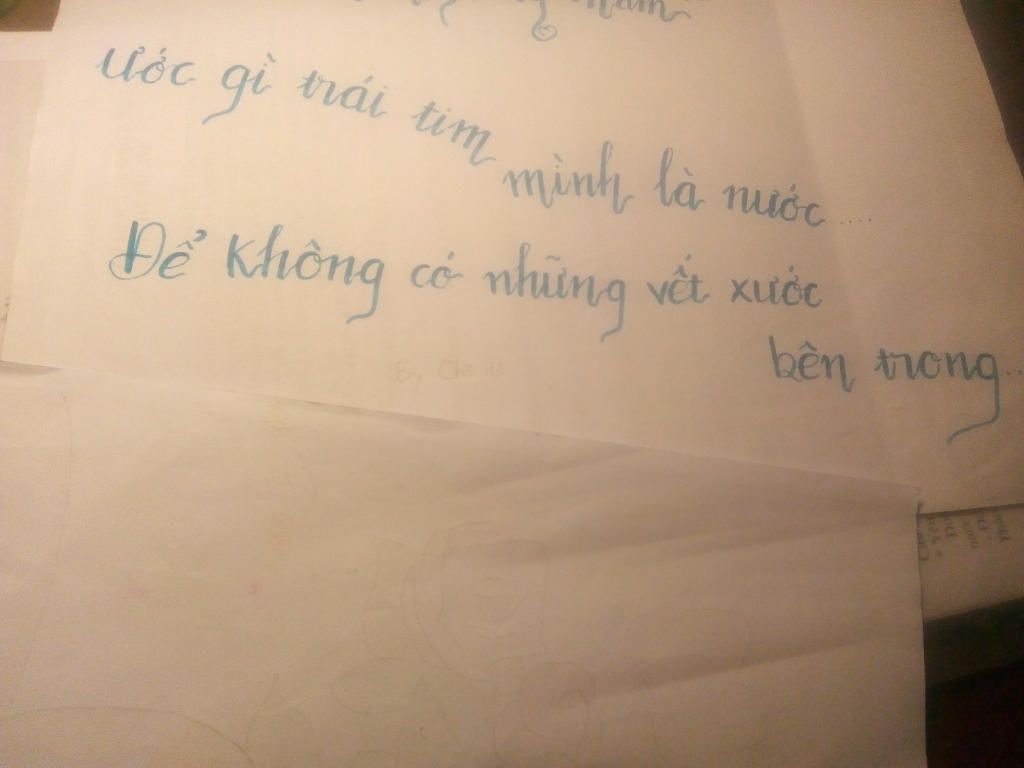 Ước gì trái tim mình là nước....
Để không có những vết xước
bên trong...
By Cha U